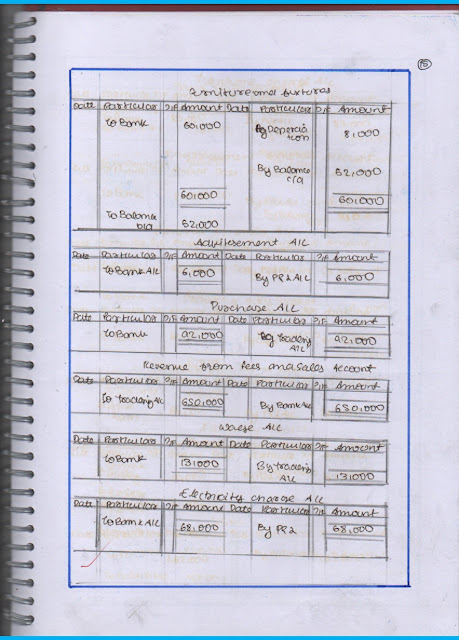 15
Furniture and fixtures
Date Particulars J/F Amount Date Particulars J/F Amount
To Bank 60,000 By Depercia 8,000
tion
By Balance 52,000
c/d
60,000 60,000
To Balance
b/d 52,000
Advitesement A/C
Date Particulars J/F Amount Date Particulars J/F Amount
To Bank A/C 6,000 By P&L A/C 6,000
Purchase A/C
Date Particulars J/F Amount Date Particulars J/F Amount
To Bank 92,000 By Trading 92,000
A/C
Revenue from fees and sales Account
Date Particulars J/F Amount Date Particulars J/F Amount
To Trading A/c 650,000 By Bank A/c 650,000
Wage A/C
Date Particulars J/F Amount Date Particulars J/F Amount
To Bank 131000 By Trading 131000
A/C
Electricity charge A/C
Date Particulars J/F Amount Date Particulars J/F Amount
To Bank A/C 68,000 By P&L 68,000